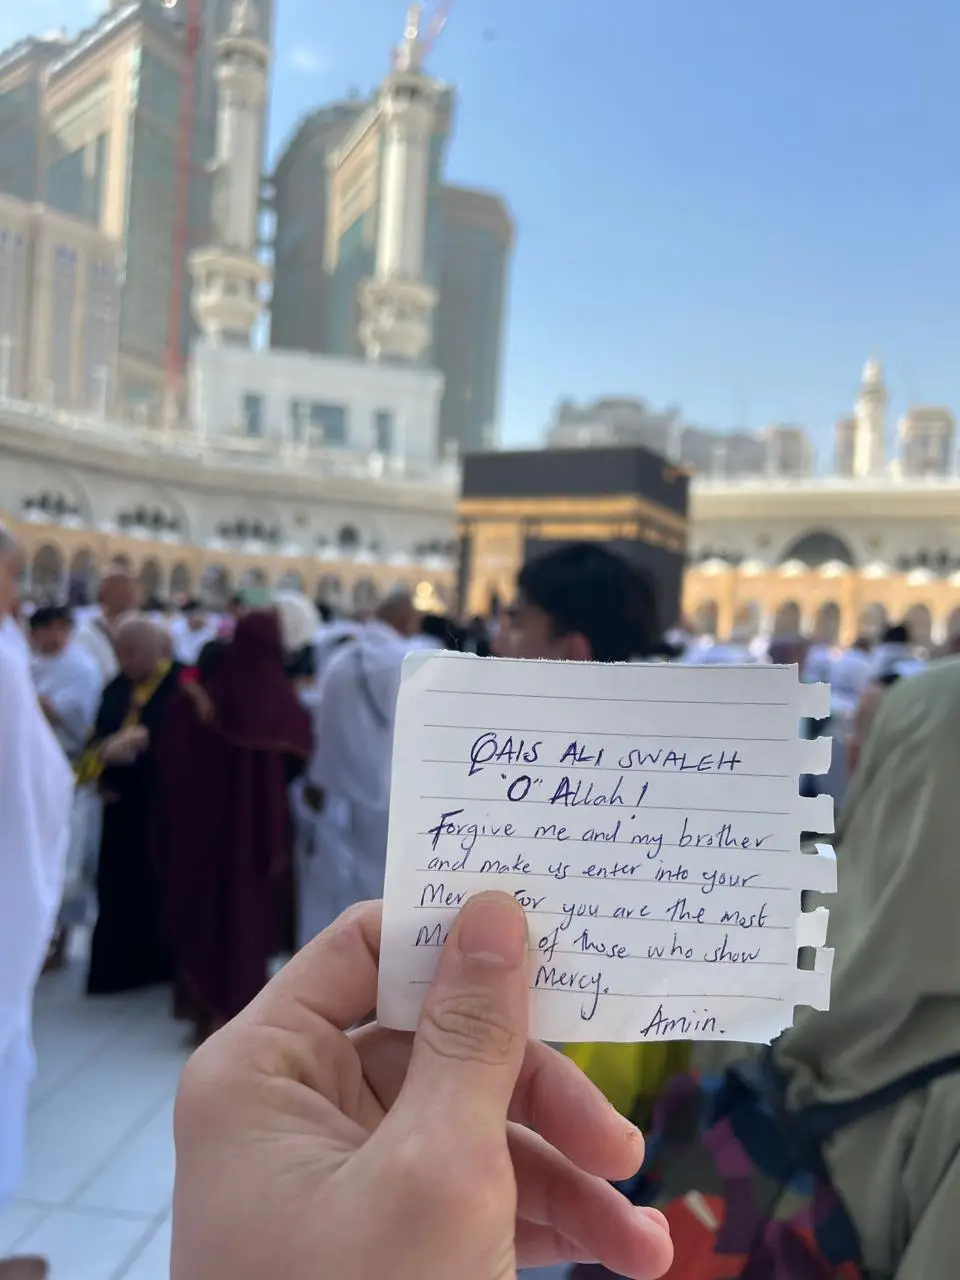 QAIS ALI SWALEH
"O" Allah!
Forgive me and my brother
and make us enter into your
for you are the most
of those who show
Mercy.
Amiin.